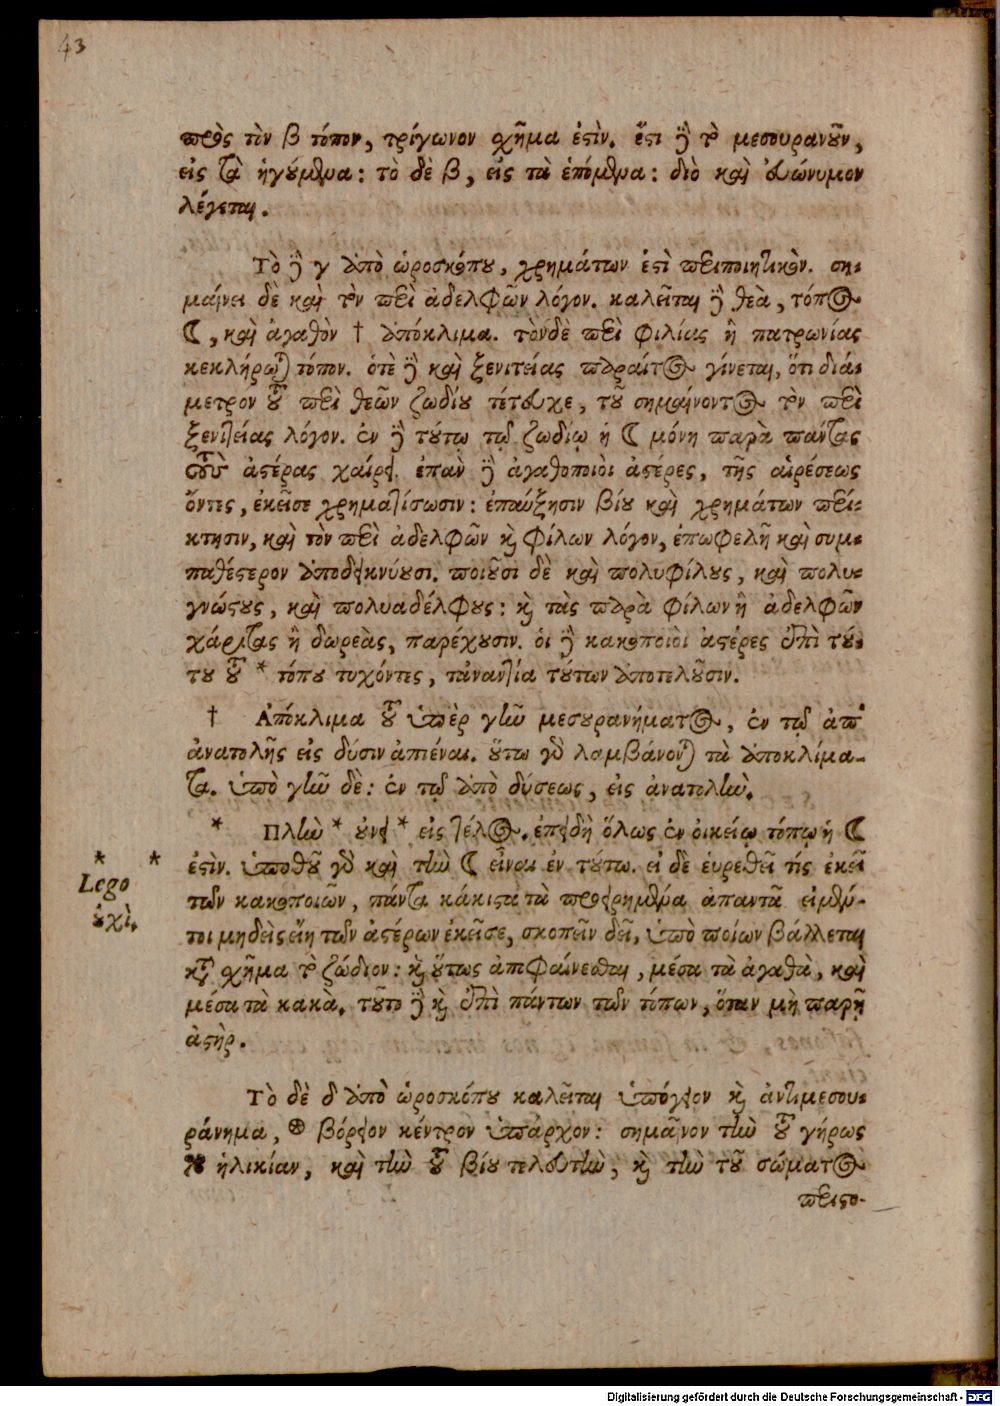 43
πρὸς τὸν β τόπον, τρίγωνον σχῆμα ἐστὶν. ἔτι γὸ τὸ μεσουρανοῦν,
εἰς τὰ ἡγούμενα: τὸ δὲ β, εἰς τὰ ἑπόμενα: διὸ καὶ εὐώνυμον
λέγεται.
Τὸ δὲ γ ἀπὸ ὡροσκόπου, χρημάτων ἐστὶ περιποιητικὸν. ση-
μαίνει δὲ καὶ τὸν περὶ ἀδελφῶν λόγον. καλεῖται δὲ θεὰ, τόπος
☾, καὶ ἀγαθὸν † ἀπόκλιμα. τόνδε περὶ φιλίας ἢ πατρωνίας
κεκλήρωται τόπον. ὁτὲ δὲ καὶ ξενιτείας παραίτιος γίνεται, ὅτι διά-
μετρον τοῦ περὶ θεῶν ζωδίου τέτευχε, τοῦ σημαίνοντος τὸν περὶ
ξενιτείας λόγον. ἐν δὲ τούτῳ τῷ ζωδίῳ ἡ ☾ μόνη παρὰ πάντας
τοὺς ἀστέρας χαίρει. ἐπὰν δὲ ἀγαθοποιοὶ ἀστέρες, τῆς αἱρέσεως
ὄντες, ἐκεῖσε χρηματίσωσιν: ἐπαύξησιν βίου καὶ χρημάτων περί-
κτησιν, καὶ τὸν περὶ ἀδελφῶν καὶ φίλων λόγον, ἐπωφελῆ καὶ συμ-
παθέστερον ἀποδεικνύουσι. ποιοῦσι δὲ καὶ πολυφίλους, καὶ πολυ-
γνώστους, καὶ πολυαδέλφους: καὶ τὰς παρὰ φίλων ἢ ἀδελφῶν
χάριτας ἢ δωρεὰς, παρέχουσιν. οἱ δὲ κακοποιοὶ ἀστέρες ἐπὶ τού-
του τοῦ * τόπου τυχόντες, τἀναντία τούτων ἀποτελοῦσιν.
† Ἀπόκλιμα τοῦ ὑπὲρ γῆν μεσουρανήματος, ἐν τῷ ἀπ'
ἀνατολῆς εἰς δύσιν ἀπιέναι. οὕτω γὰρ λαμβάνονται τὰ ἀποκλίμα-
τα. ὑπὸ γῆν δὲ: ἐν τῷ ἀπὸ δύσεως, εἰς ἀνατολὴν.
* Πλὴν * οὐνεὶ * εἰς τέλος. ἐπειδὴ ὅλως ἐν οἰκείῳ τόπῳ ἡ ☾
ἐστὶν. ὑποθοῦ γὰρ καὶ τὴν ☾ εἶναι ἐν τούτω. εἰ δὲ εὑρεθεῖ τίς ἐκεῖ
τῶν κακοποιῶν, πάντα κάκιστα τὰ προειρημένα ἀπαντᾶ εἰ μέν-
τοι μηδεὶς εἴη τῶν ἀστέρων ἐκεῖσε, σκοπεῖν δεῖ, ὑπὸ ποίων βάλλεται
κατὰ σχῆμα τὸ ζώδιον: καὶ οὕτως ἀποφαίνεσθαι, μέσα τὰ ἀγαθὰ, καὶ
μέσα τὰ κακὰ. τοῦτο δὲ καὶ ἐπὶ πάντων τῶν τόπων, ὅταν μὴ παρῇ
ἀστὴρ.
* *
Lego
οὐχὶ.
Τὸ δὲ δ ἀπὸ ὡροσκόπου καλεῖται ὑπόγειον καὶ ἀντιμεσου-
ράνημα, ⊛ βόρειον κέντρον ὑπάρχον: σημαῖνον τὴν τοῦ γήρως
ἡλικίαν, καὶ τὴν τοῦ βίου τελευτὴν, καὶ τὴν τοῦ σώματος
περιστο-
Digitalisierung gefördert durch die Deutsche Forschungsgemeinschaft - DFG